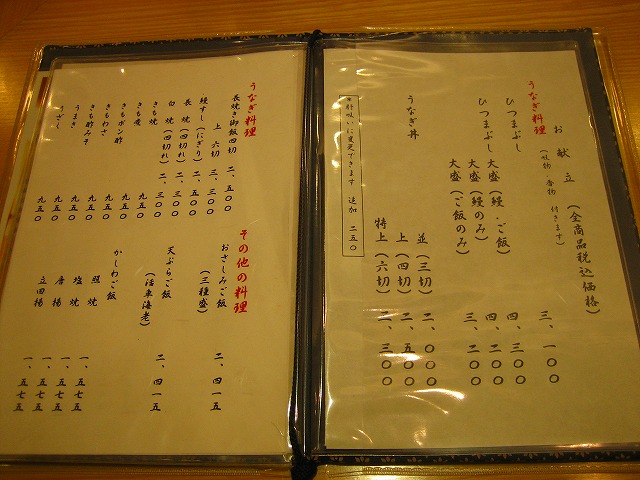 お献立 (全商品税込価格)
(吸物・香物 付きます)
うなぎ料理
ひつまぶし 三、一〇〇
ひつまぶし 大盛(鰻・ご飯) 四、三〇〇
大盛(鰻のみ) 四、二〇〇
大盛(ご飯のみ) 三、二〇〇
うなぎ丼 並(三切) 二、〇〇〇
上(四切) 二、五〇〇
特上(六切) 三、三〇〇
*肝吸いに変更できます 追加 二五〇
うなぎ料理
長焼き御飯四切 二、五〇〇
上 六切 三、三〇〇
鰻すし(にぎり) 二、五〇〇
長焼(四切れ) 二、三〇〇
白焼(四切れ) 二、三〇〇
きも焼 九五〇
きも煮 九五〇
きもポン酢 九五〇
きもわさ 九五〇
きも酢みそ 九五〇
うまき 九五〇
うざし 九五〇
その他の料理
おさしみご飯
(三種盛) 二、四一五
天ぷらご飯
(活車海老) 二、四一五
かしわご飯
照焼 一、五七五
塩焼 一、五七五
唐揚 一、五七五
立田揚 一、五七五